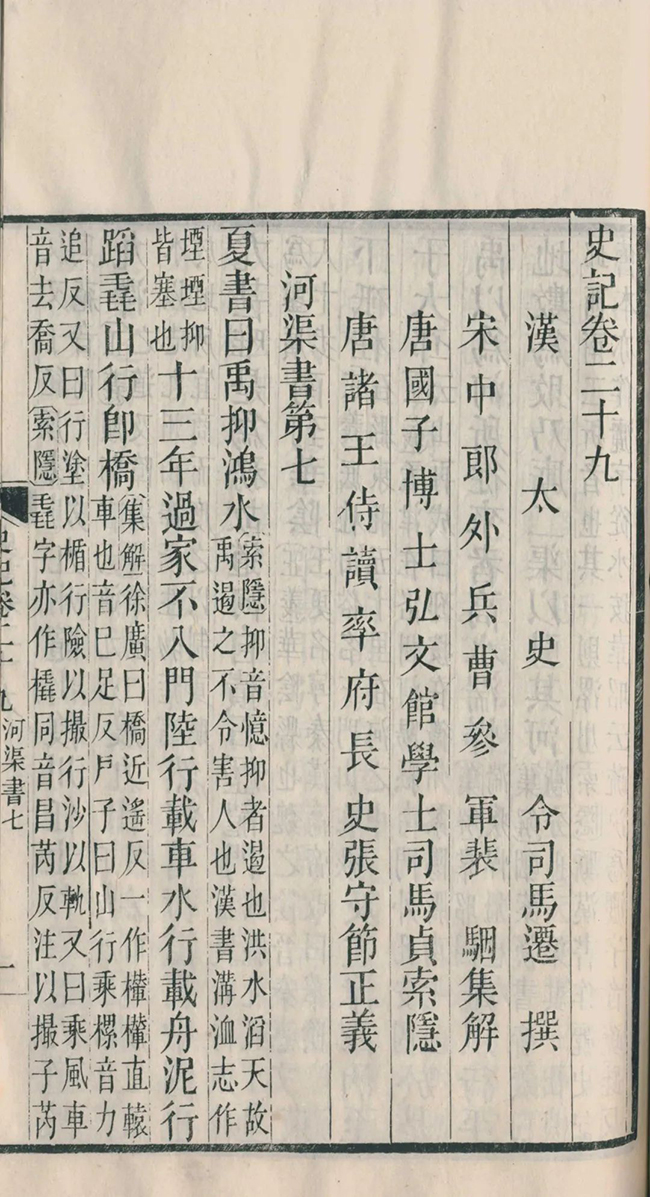 史記卷二十九
漢太史令司馬遷撰
宋中郎外兵曹參軍裴駰集解
唐國子博士弘文館學士司馬貞索隱
唐諸王侍讀率府長史張守節正義
河渠書第七
夏書曰禹抑鴻水
索隱抑音憶抑者遏也洪水滔天故
禹遏之不令害人也漢書溝洫志作
堙堙抑
皆塞也
十三年過家不入門陸行載車水行載舟泥行
蹈毳山行卽橋
集解徐廣曰橋近遙反一作檋檋直轅
車也音已足反尸子曰山行乘樏音力
追反又曰行塗以楯行險以撮行沙以軌又曰乘風車
音去喬反索隱毳字亦作橇同音昌芮反注以撮子芮
史記卷二十九
河渠書七
一